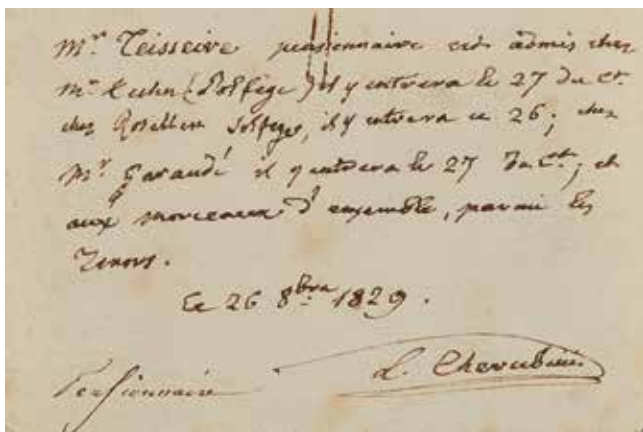 Mr. Teisseire pensionnaire est admis chez
Mr. Kuhn (Solfège) il y entrera le 27 du Ct.
chez Rosellen Solfege, il y entrera ce 26; chez
Mr. Garaudé il y entrera le 27 du Ct.; et
aux morceaux d'ensemble, parmi les
Tenors.
Ce 26 8bre 1829.
L. Cherubini
Pensionnaire